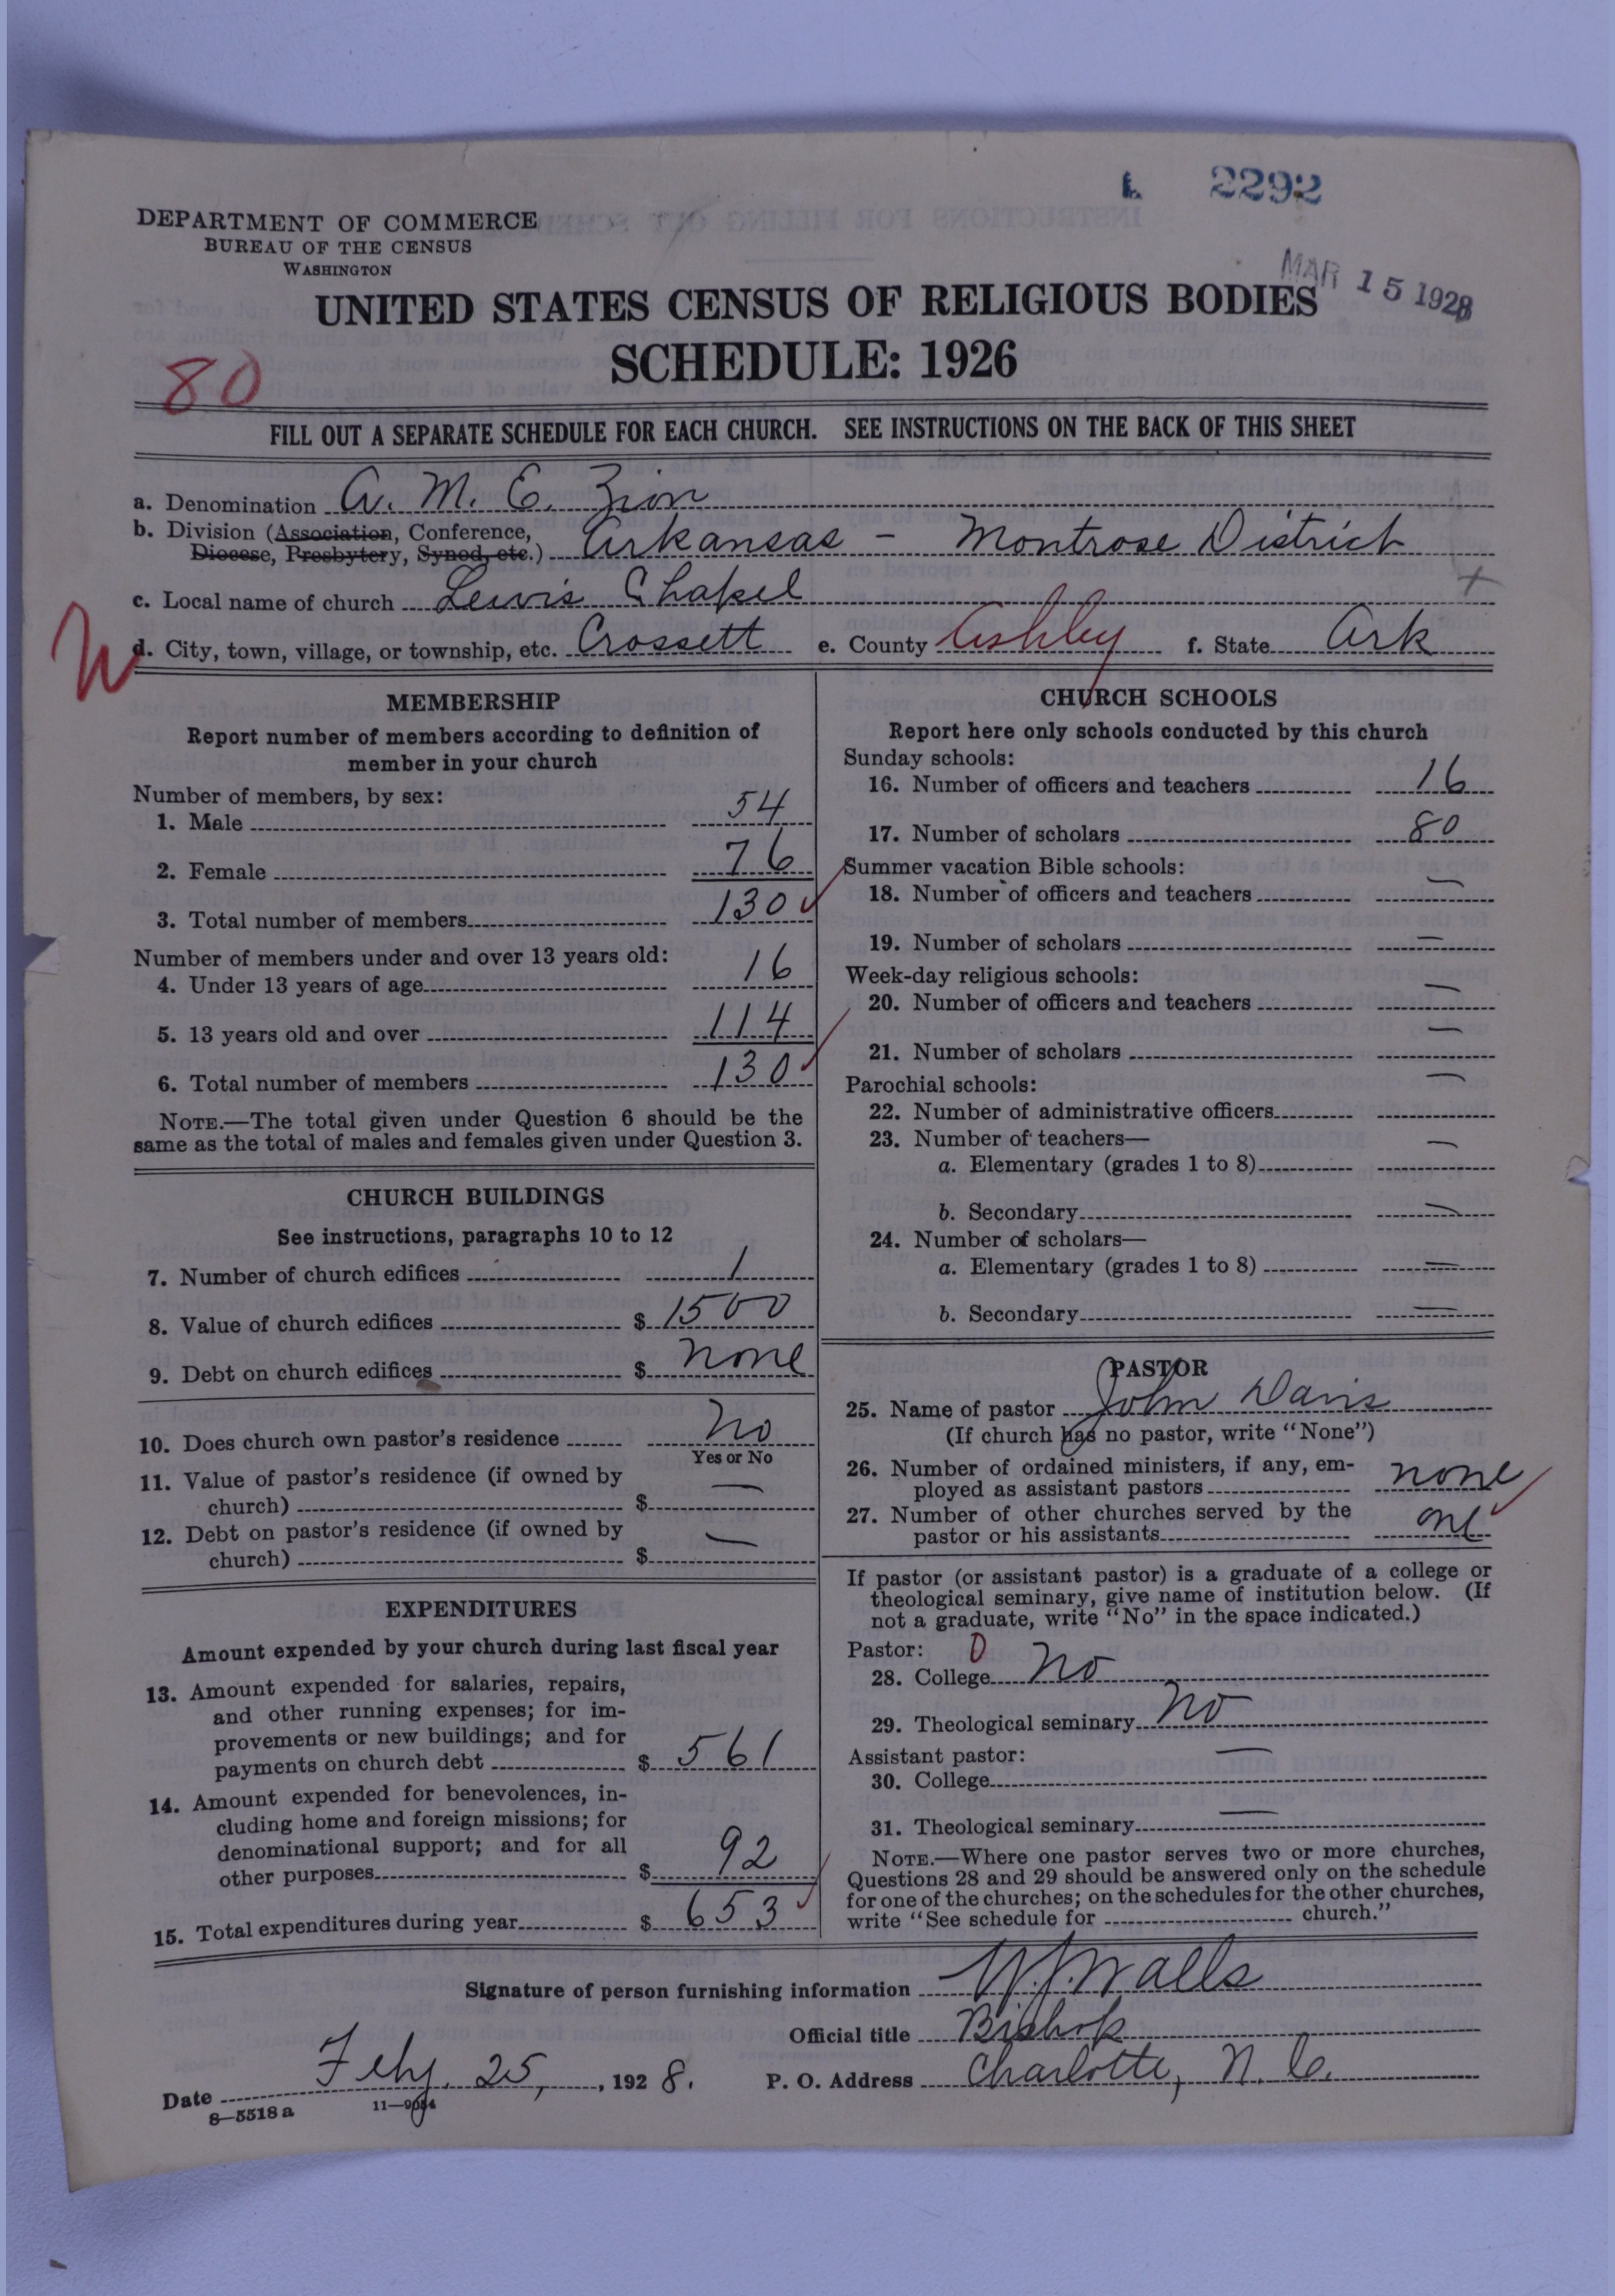 L 2292
DEPARTMENT OF COMMERCE
BUREAU OF THE CENSUS
WASHINGTON
MAR 15 1928
UNITED STATES CENSUS OF RELIGIOUS BODIES
SCHEDULE: 1926
80
FILL OUT A SEPARATE SCHEDULE FOR EACH CHURCH. SEE INSTRUCTIONS ON THE BACK OF THIS SHEET
a. Denomination A. M. E. Zion
b. Division (Association, Conference,
Diocese, Presbytery, Synod, etc.) Arkansas - Montrose District
c. Local name of church Lewis Chapel
d. City, town, village, or township, etc. Crossett e. County Ashley f. State Ark
MEMBERSHIP
Report number of members according to definition of
member in your church
Number of members, by sex:
1. Male 54
2. Female 76
3. Total number of members 130
Number of members under and over 13 years old:
4. Under 13 years of age 16
5. 13 years old and over 114
6. Total number of members 130
NOTE.—The total given under Question 6 should be the
same as the total of males and females given under Question 3.
CHURCH BUILDINGS
See instructions, paragraphs 10 to 12
7. Number of church edifices 1
8. Value of church edifices $ 1500
9. Debt on church edifices $ none
10. Does church own pastor's residence No
Yes or No
11. Value of pastor's residence (if owned by
church) $ —
12. Debt on pastor's residence (if owned by
church) $ —
EXPENDITURES
Amount expended by your church during last fiscal year
13. Amount expended for salaries, repairs,
and other running expenses; for im-
provements or new buildings; and for
payments on church debt $ 561
14. Amount expended for benevolences, in-
cluding home and foreign missions; for
denominational support; and for all
other purposes $ 92
15. Total expenditures during year $ 653
CHURCH SCHOOLS
Report here only schools conducted by this church
Sunday schools:
16. Number of officers and teachers 16
17. Number of scholars 80
Summer vacation Bible schools:
18. Number of officers and teachers —
19. Number of scholars —
Week-day religious schools:
20. Number of officers and teachers —
21. Number of scholars —
Parochial schools:
22. Number of administrative officers —
23. Number of teachers—
a. Elementary (grades 1 to 8) —
b. Secondary —
24. Number of scholars—
a. Elementary (grades 1 to 8) —
b. Secondary —
PASTOR
25. Name of pastor John Davis
(If church has no pastor, write "None")
26. Number of ordained ministers, if any, em-
ployed as assistant pastors none
27. Number of other churches served by the
pastor or his assistants one
If pastor (or assistant pastor) is a graduate of a college or
theological seminary, give name of institution below. (If
not a graduate, write "No" in the space indicated.)
Pastor: 0
28. College No
29. Theological seminary No
Assistant pastor:
30. College —
31. Theological seminary —
NOTE.—Where one pastor serves two or more churches,
Questions 28 and 29 should be answered only on the schedule
for one of the churches; on the schedules for the other churches,
write "See schedule for church."
Signature of person furnishing information W. J. Walls
Official title Bishop
Date Feby. 25, 1928. P. O. Address Charlotte, N. C.
8—5518 a 11—9054